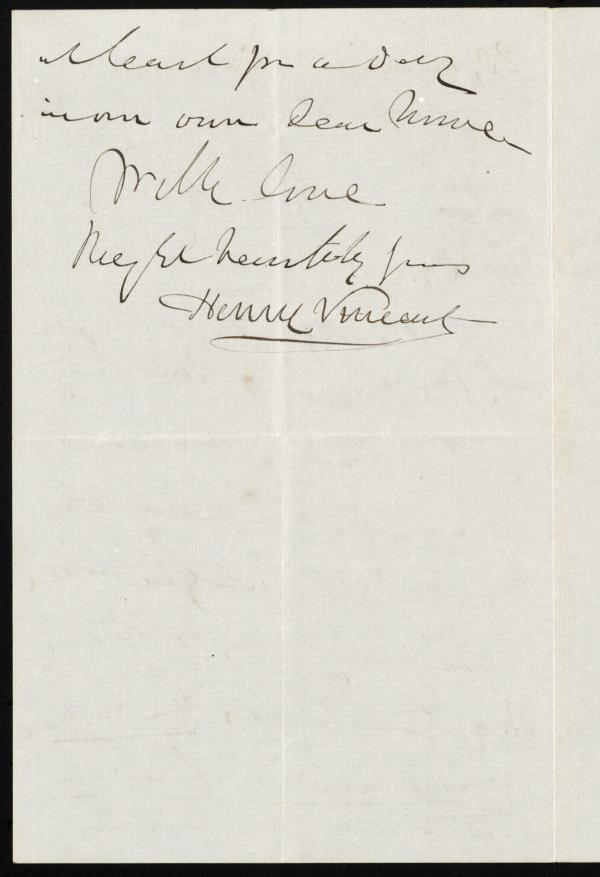 at least for a day
in our own dear home
With love
Right heartily yours
Henry Vincent